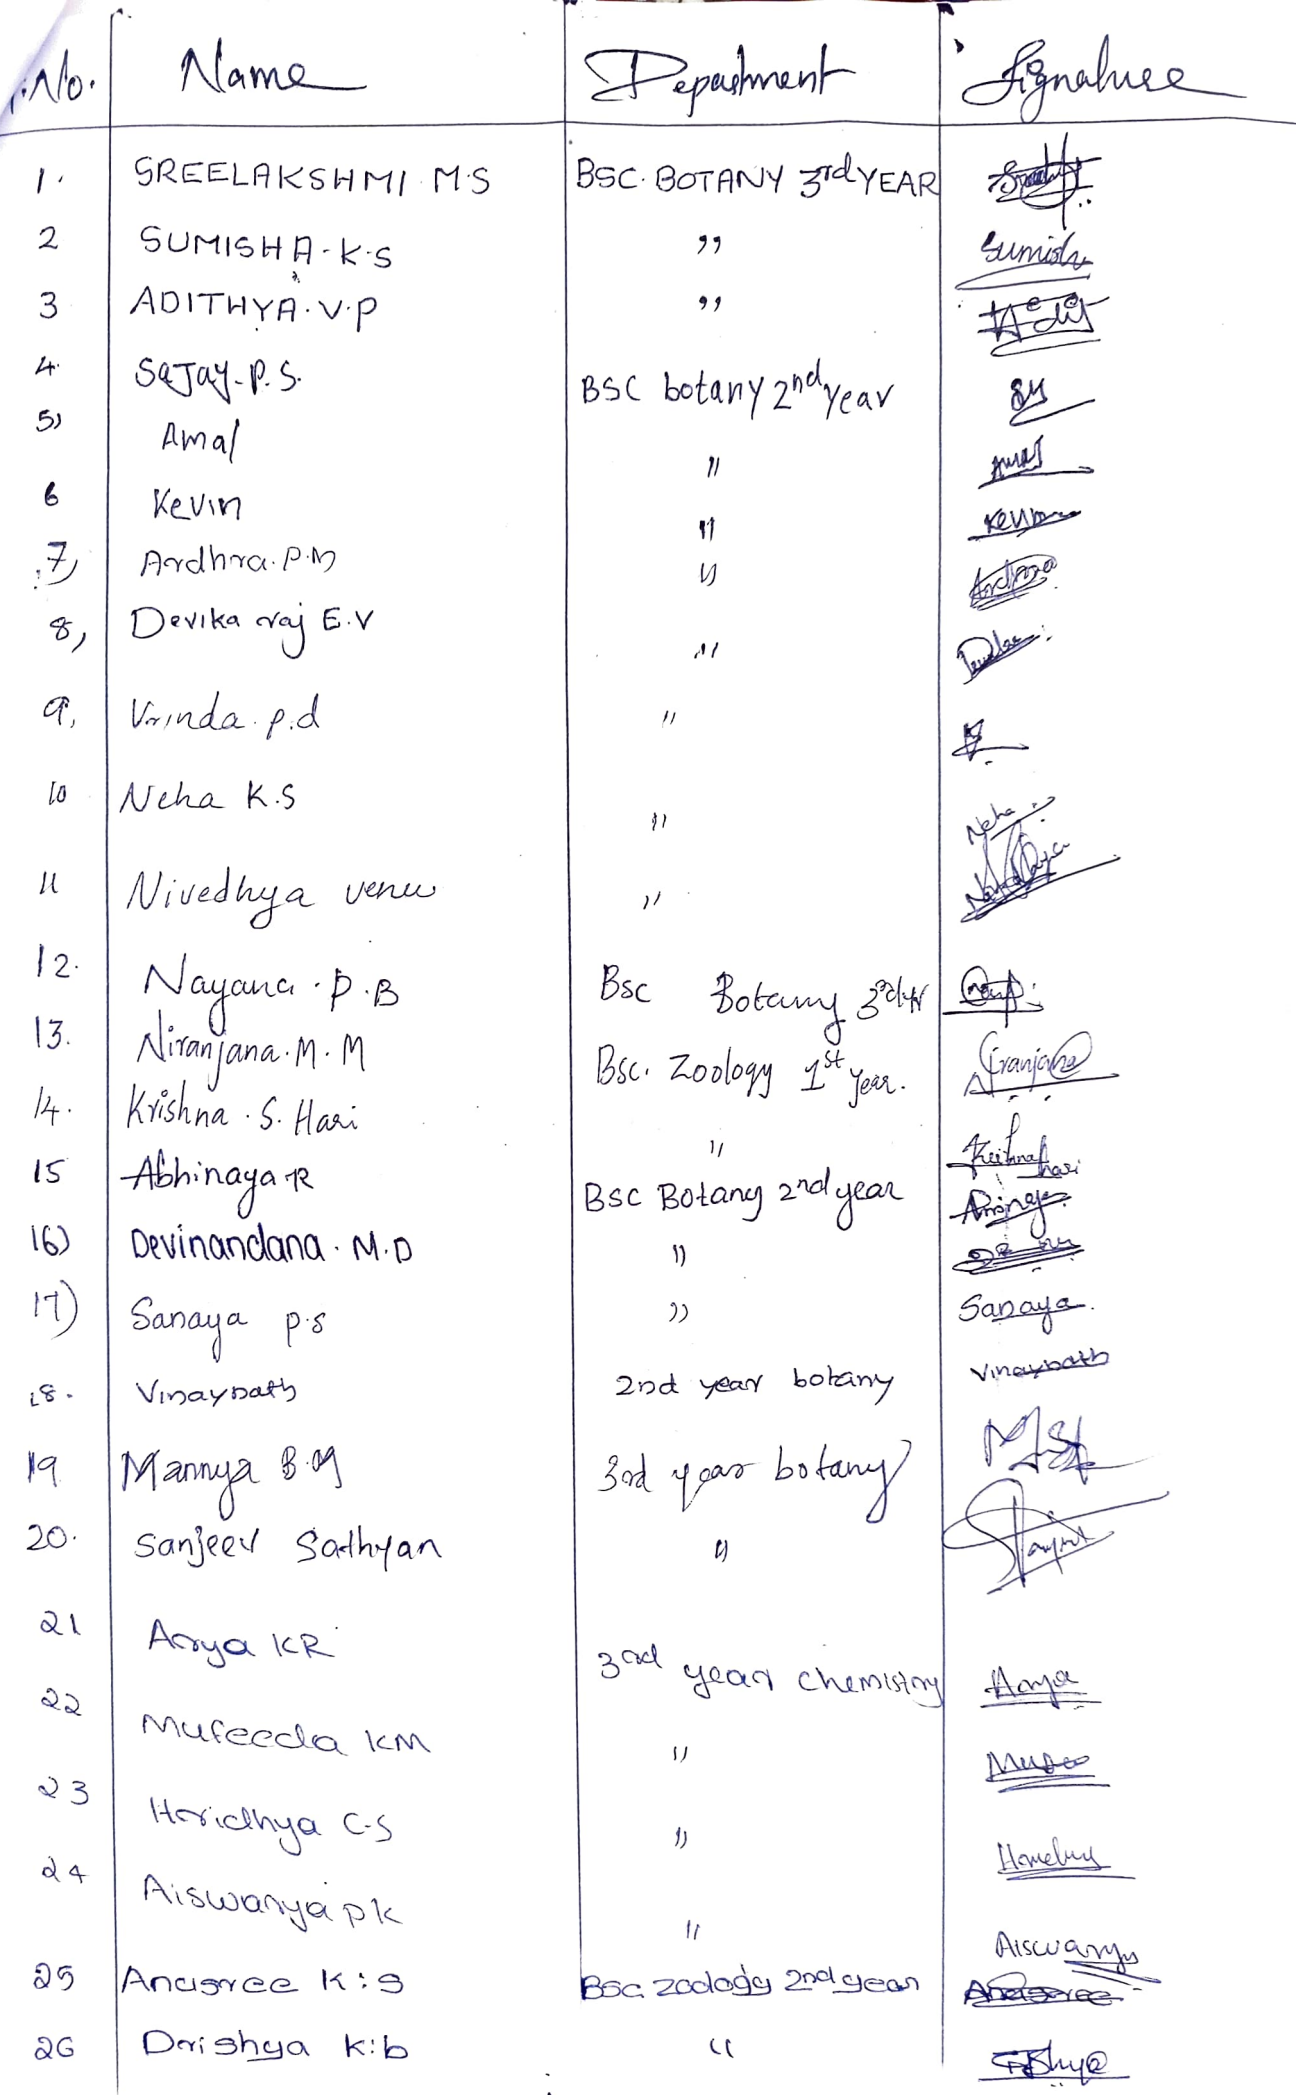 No. Name Department Signature
1. SREELAKSHMI M.S BSC. BOTANY 3rd YEAR
2 SUMISHA.K.S ,, Sumisha
3 ADITHYA.V.P ,,
4. Sajay.P.S. BSC botany 2nd year
5) Amal " Amal
6 Kevin " Kevin
7) Ardhra.P.M " Ardhra
8, Devika raj E.V "
9, Vrinda.p.d "
10 Neha K.S " Neha
11 Nivedhya venu "
12. Nayana.P.B Bsc Botany 3rd yr
13. Niranjana.M.M Bsc. Zoology 1st year. Niranjana
14. Krishna.S.Hari " Krishna hari
15 Abhinaya R BSC Botany 2nd year
16) Devinandana.M.D "
17) Sanaya p.s " Sanaya.
18. Vinaynath 2nd year botany Vinaynath
19 Mannya B.M 3rd year botany
20. Sanjeev Sathyan "
21 Arya KR 3rd year chemistry Arya
22 Mufeeda KM "
23 Horidhya C.S "
24 Aiswarya pk " Aiswarya
25 Anasree K:s BSc. zoology 2nd year Anasree
26 Drishya K:b "